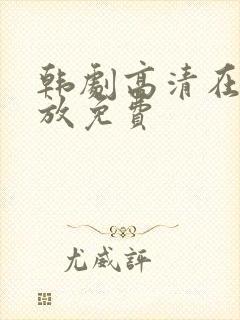 韩劇高清在
放免費
尤威評